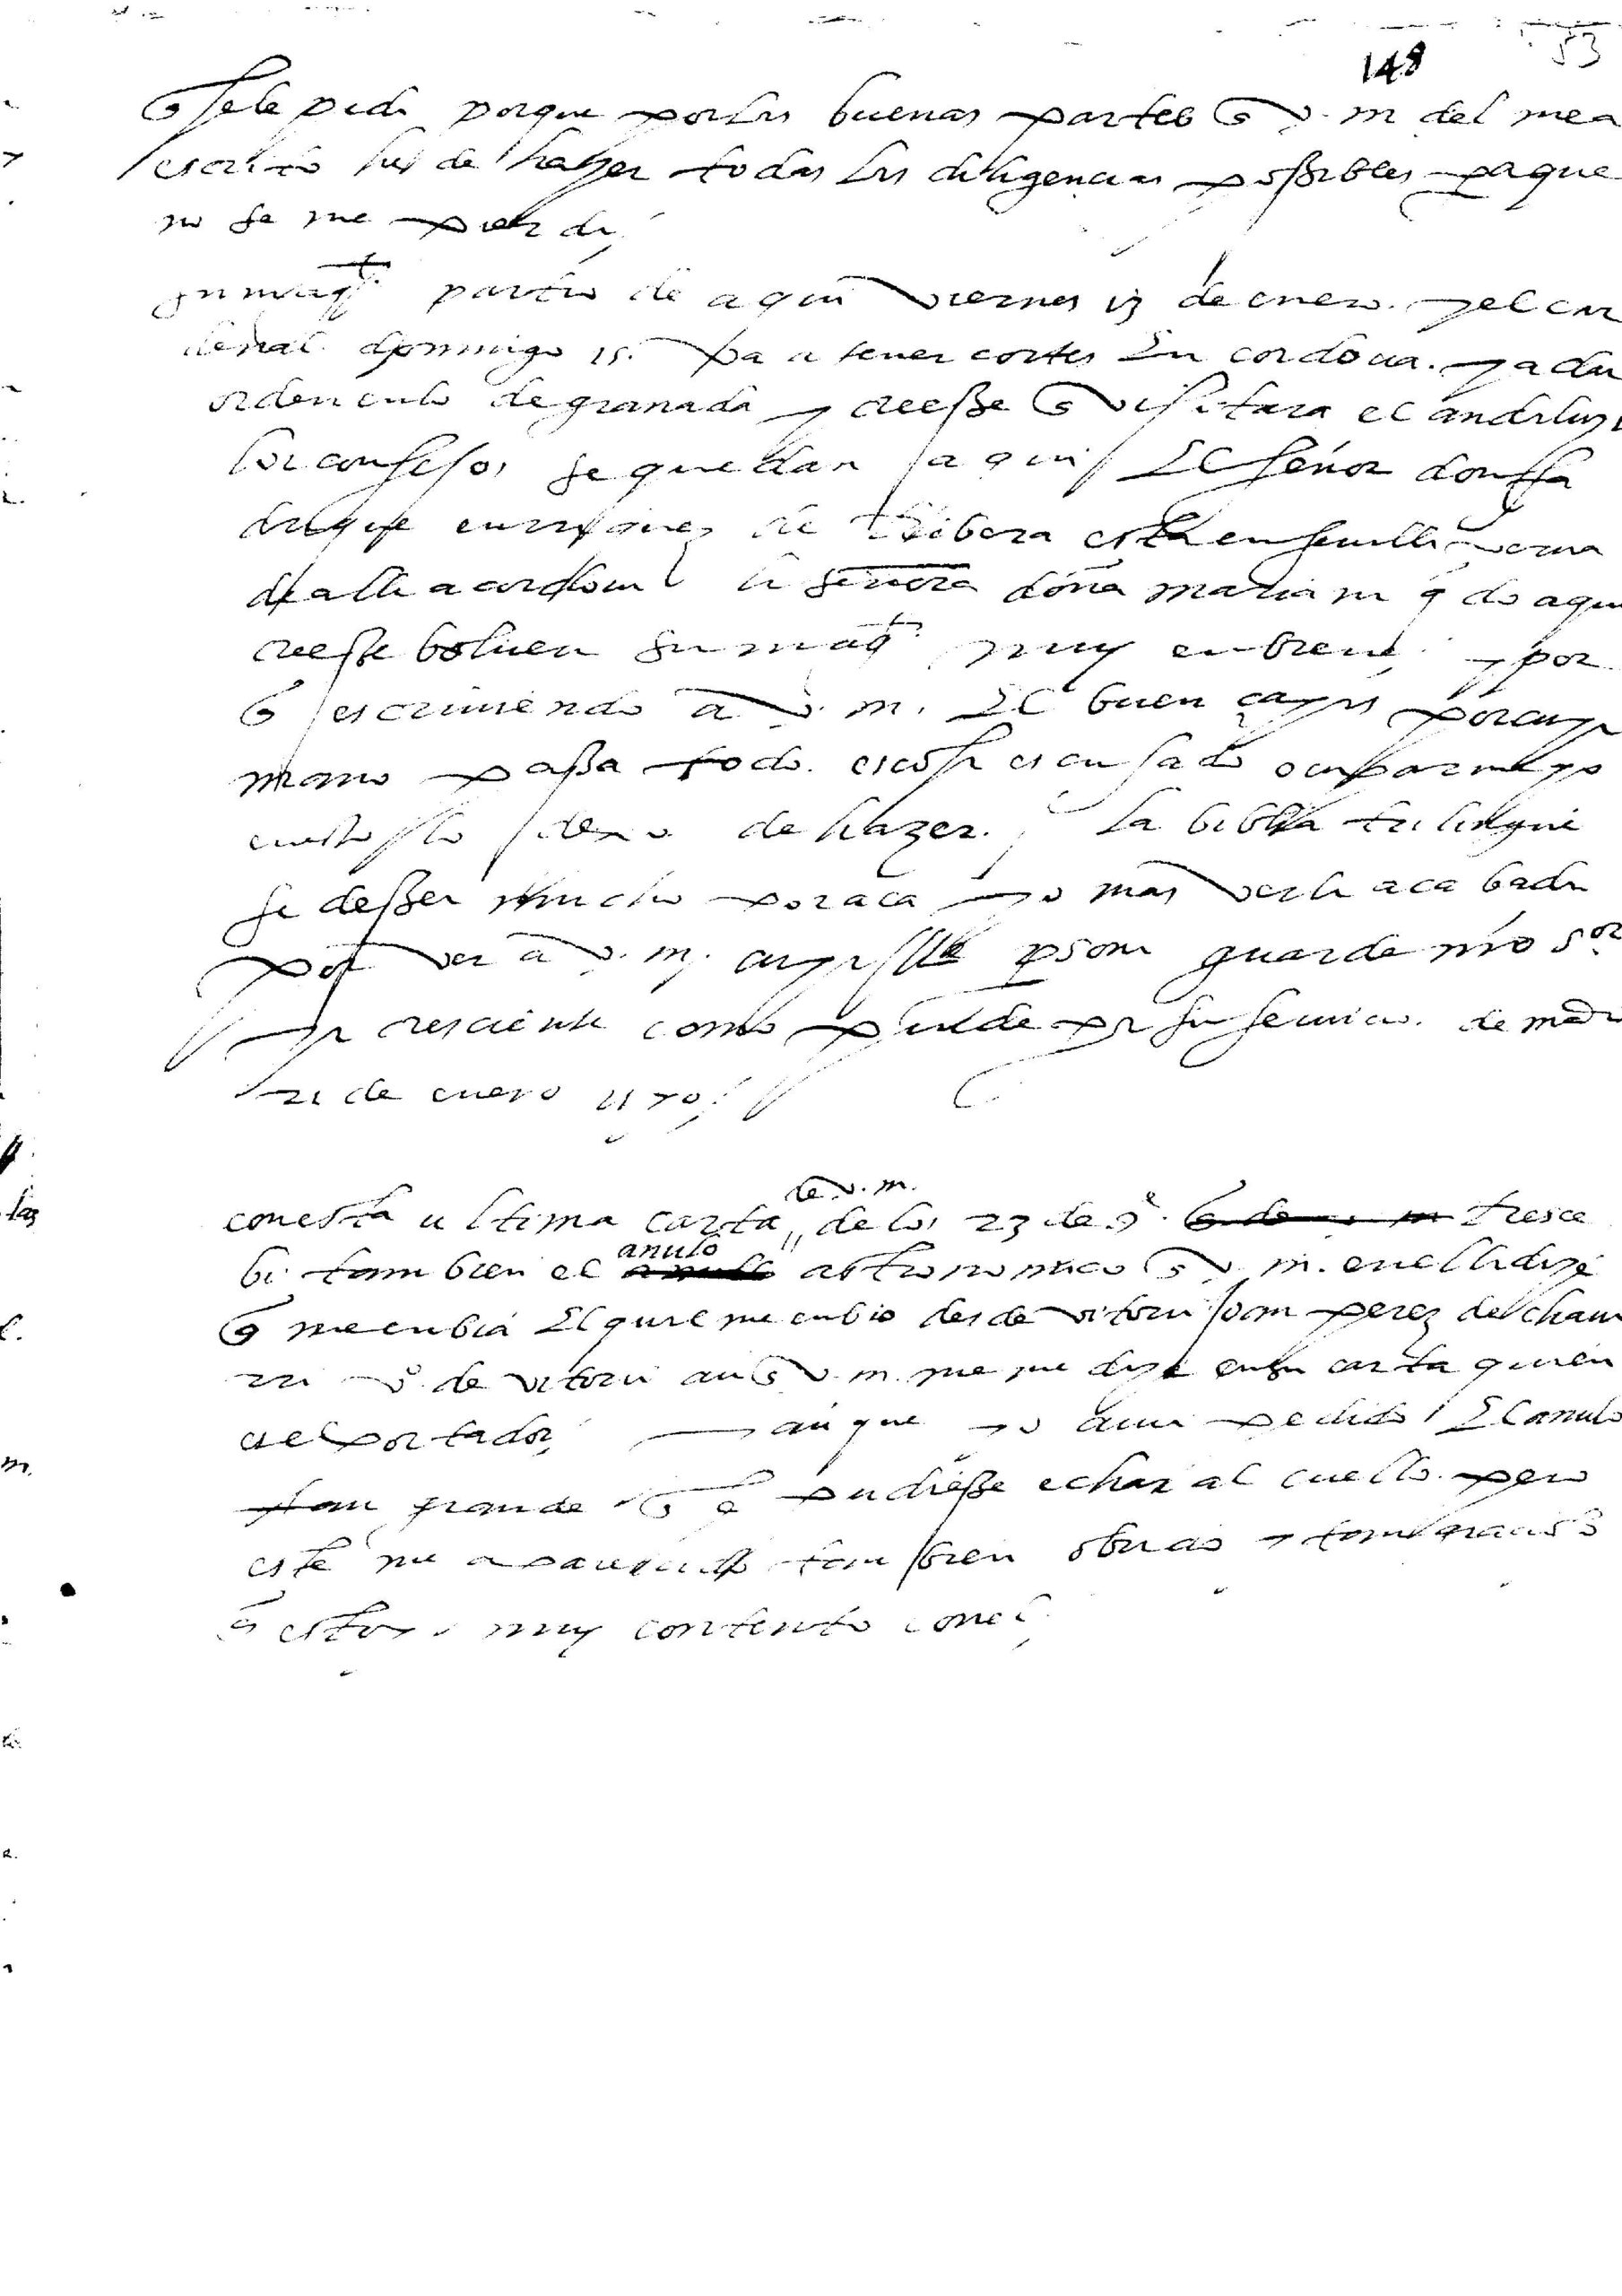 148 53
q se le pida porque por las buenas partes q v. m. del me a
escrito hes de hazer todas las diligencias possibles paque
no se me pierda
su magt. partio de aqui viernes 13 de enero. y el car
denal domingo 15. va a tener cortes en cordoua. y a dar
orden en lo de granada y creesse q visitara el andaluzi
los consejos se quedan aqui El señor don fa
drique enrriquez de Ribera esta en seuilla verna
de alli a cordoua la señora doña mariana qdo aqui
creesse boluera su magt. muy en breue, y por
q escriuiendo a v. m. El buen çayas por cuya
mano passa todo. es cosa escusada ocuparme yo
en esto lo dexo de hazer. La biblia trilingue
se dessea mucho por aca yo mas verla acabada
por ver a v. m. cuya Ille psona guarde nro Sor
y acresciente como puede pa su seruicio. de madrid
21 de enero 1570.
de v. m.
con esta ultima carta de los 23 de 9e. q de m resce
anulo
bi tambien el anulo astronomico q v. m. en ella dize
q me enbia El qual me enbio desde vitoria Joan perez del chaui
rri vo. de vitoria aunq v. m. no me dize en su carta quien
es el portador, aunque yo auia pedido El anulo
tan grande q se pudiesse echar al cuello. pero
este me a parescido tambien obrado y tan gracioso
q estoy muy contento con el,